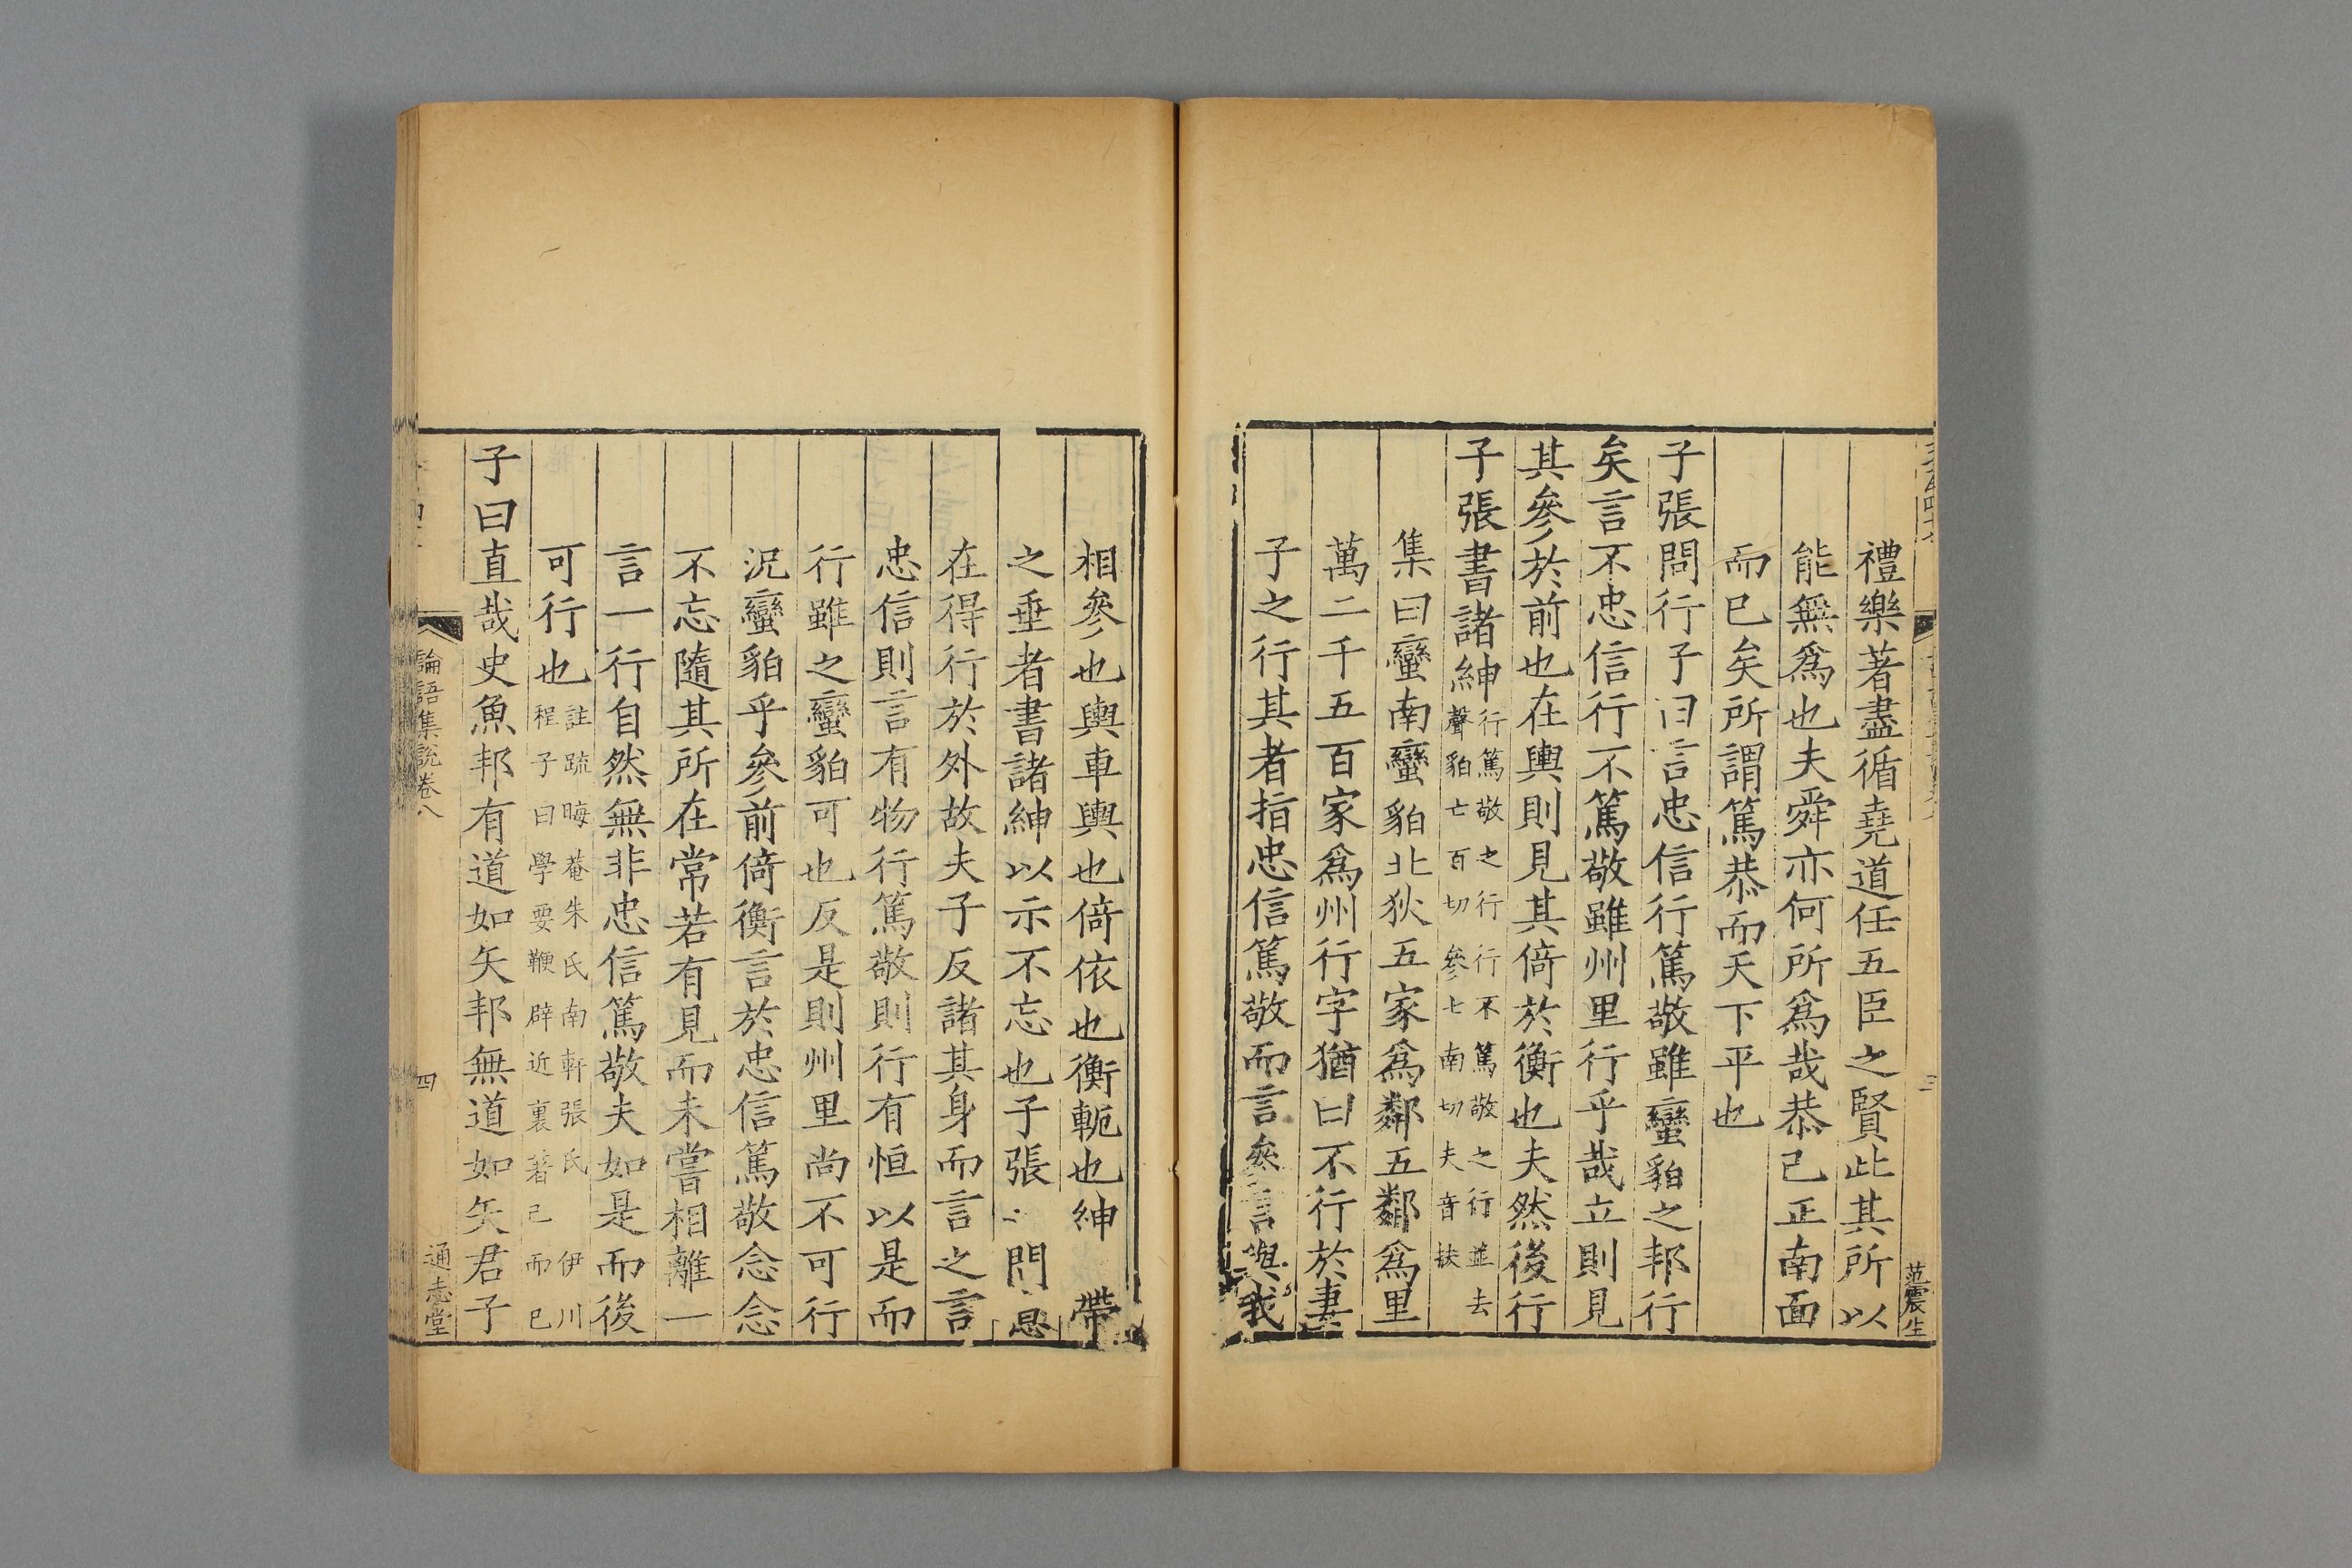 禮樂著盡循堯道任五臣之賢此其所以
能無爲也夫舜亦何所爲哉恭己正南面
而已矣所謂篤恭而天下平也
子張問行子曰言忠信行篤敬雖蠻貊之邦行
矣言不忠信行不篤敬雖州里行乎哉立則見
其參於前也在輿則見其倚於衡也夫然後行
子張書諸紳
行篤敬之行行不篤敬之行並去
聲貊亡百切參七南切夫音扶
集曰蠻南蠻貊北狄五家爲鄰五鄰爲里
萬二千五百家爲州行字猶曰不行於妻
子之行其者指忠信篤敬而言參言與我
范震生
相參也輿車輿也倚依也衡軛也紳帶
之垂者書諸紳以示不忘也子張問
在得行於外故夫子反諸其身而言之言
忠信則言有物行篤敬則行有恒以是而
行雖之蠻貊可也反是則州里尚不可行
況蠻貊乎參前倚衡言於忠信篤敬念念
不忘隨其所在常若有見而未嘗相離一
言一行自然無非忠信篤敬夫如是而後
可行也
註疏晦菴朱氏南軒張氏伊川
程子曰學要鞭辟近裏著己而已
子曰直哉史魚邦有道如矢邦無道如矢君子
論語集說卷八
四
通志堂